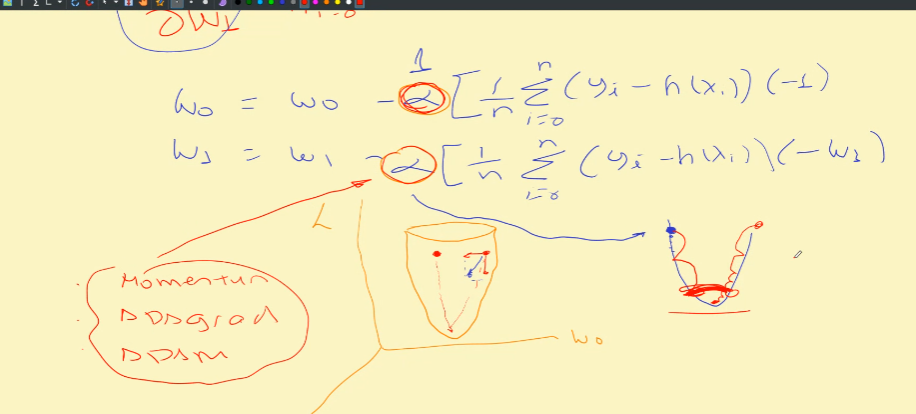 ∂W1 i=0
1
w0 = w0 - α [ 1/n Σ_{i=0}^{n} (yi - h(xi)) (-1)
w1 = w1 - α [ 1/n Σ_{i=0}^{n} (yi - h(xi)) (-w1)
L
Momentum
ADAgrad
ADAM
w0